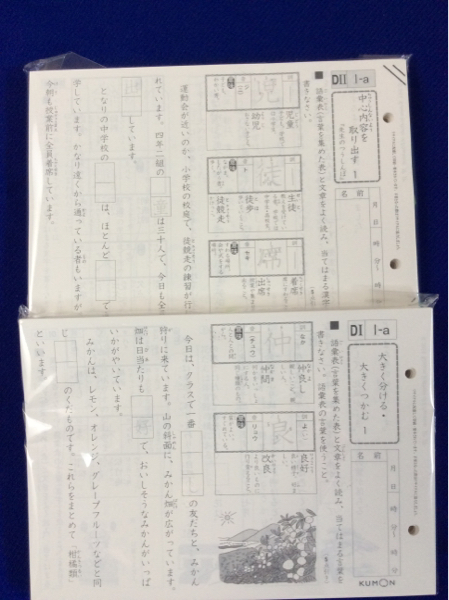 DⅡ 1-a
中心内容を
取り出す 1
名前
月 日
時 分〜
時 分
■語彙表(言葉を集めた表)と文章をよく読み、当てはまる漢字を
書きなさい。
児
児童
幼児
徒
生徒
徒歩
徒競走
席
着席
出席
運動会が近いのか、小学校の校庭で、徒競走の練習が行
れています。四年二組の
は三十人で、今日も全
しています。
となりの中学校の
は、ほとんど
で
学しています。かなり遠くから通っている者もいますが
今朝も授業前に全員着席しています。
DⅠ 1-a
大きく分ける・
大きくつかむ 1
名前
月 日
時 分〜
時 分
KUMON
■語彙表(言葉を集めた表)と文章をよく読み、当てはまる言葉を
書きなさい。語彙表の言葉を使うこと。
仲
なか
(チュウ)
仲良し
仲間
良
よ-い
リョウ
良好
改良
今日は、クラスで一番
の友だちと、みかん
狩りに来ています。山の斜面に、みかん畑が広がっています。
畑は日当たりも
で、おいしそうなみかんがいっぱ
いかがやいています。
みかんは、レモン、オレンジ、グレープフルーツなどと同
じ
のくだものです。これらをまとめて「柑橘類」
といいます。